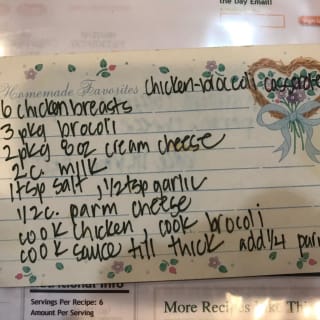 the Day Email!
Sign
Homemade Favorites chicken-broccoli casserole
6 chicken breasts
3 pkg brocoli
2 pkg 8 oz cream cheese
2 c. milk
1 tsp salt 1 1/2 tsp garlic
1/2 c. parm cheese
cook chicken cook brocoli
cook sauce till thick add 1/4 parm
Nutritional Info
Servings Per Recipe: 6
Amount Per Serving
More Recipes Like This